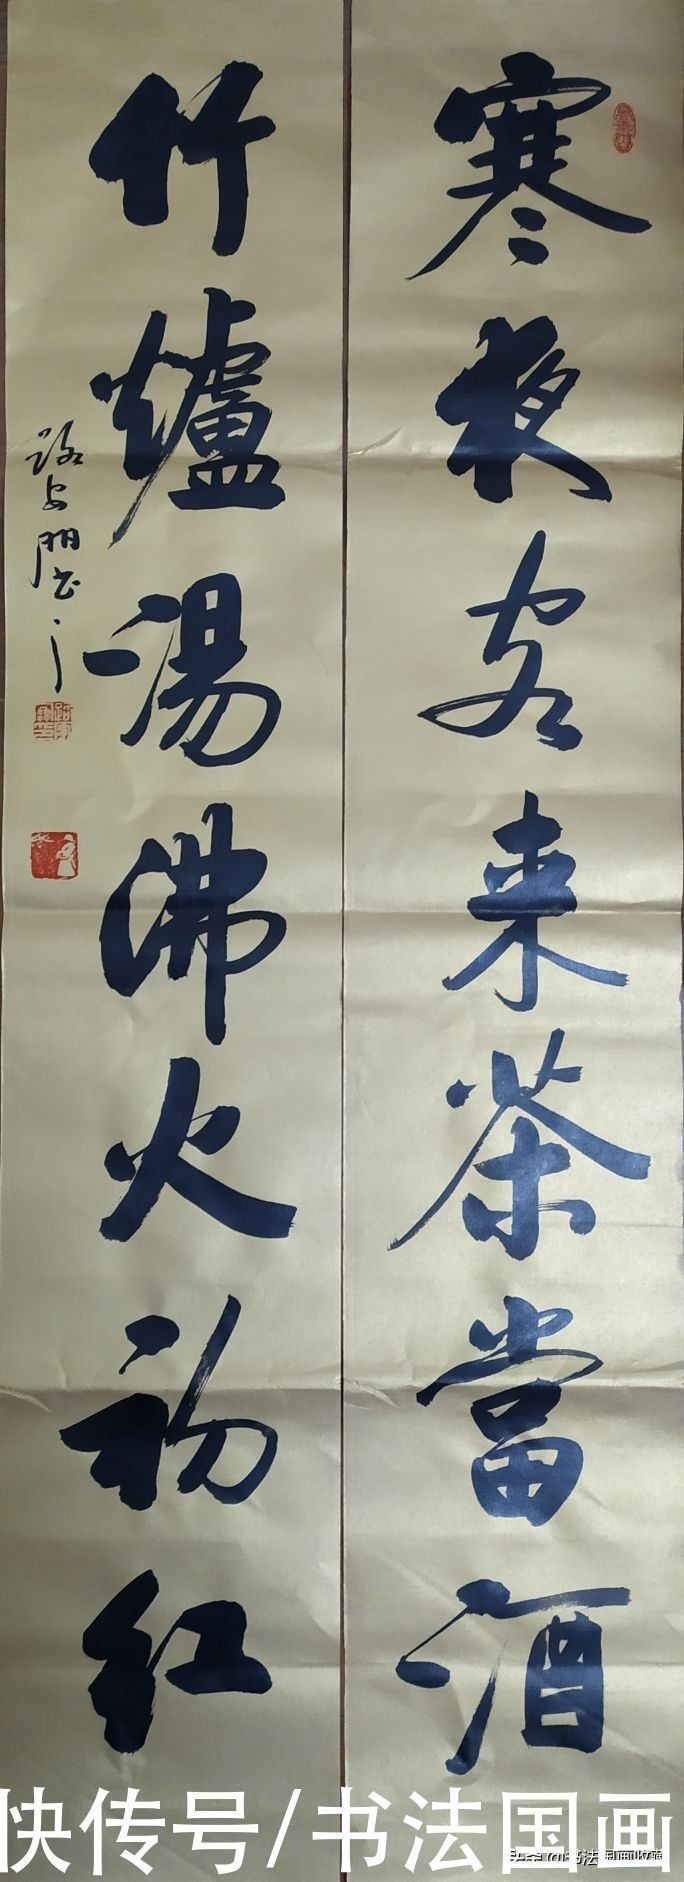 寒夜客来茶當酒
竹爐湯沸火初红
路安
快传号/书法国画
头条 @书法国画收藏